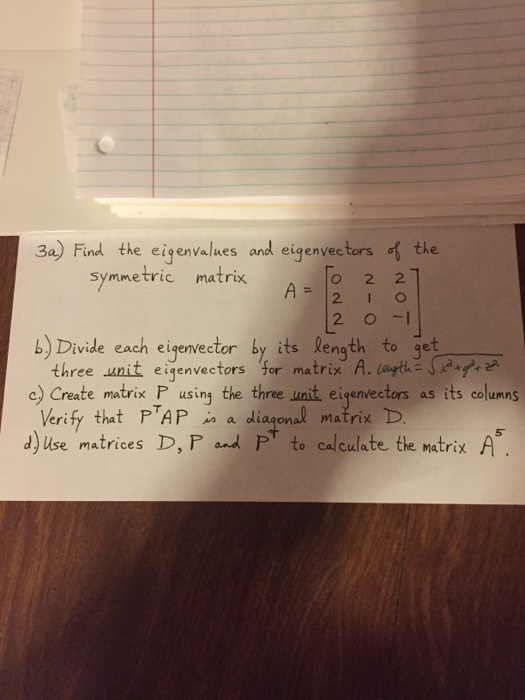 3a) Find the eigenvalues and eigenvectors of the
symmetric matrix A = [0 2 2
2 1 0
2 0 -1]
b.) Divide each eigenvector by its length to get
three unit eigenvectors for matrix A. Length = √x²+y²+z²
c.) Create matrix P using the three unit eigenvectors as its columns
Verify that PᵀAP is a diagonal matrix D.
d.) Use matrices D, P and Pᵀ to calculate the matrix A⁵.